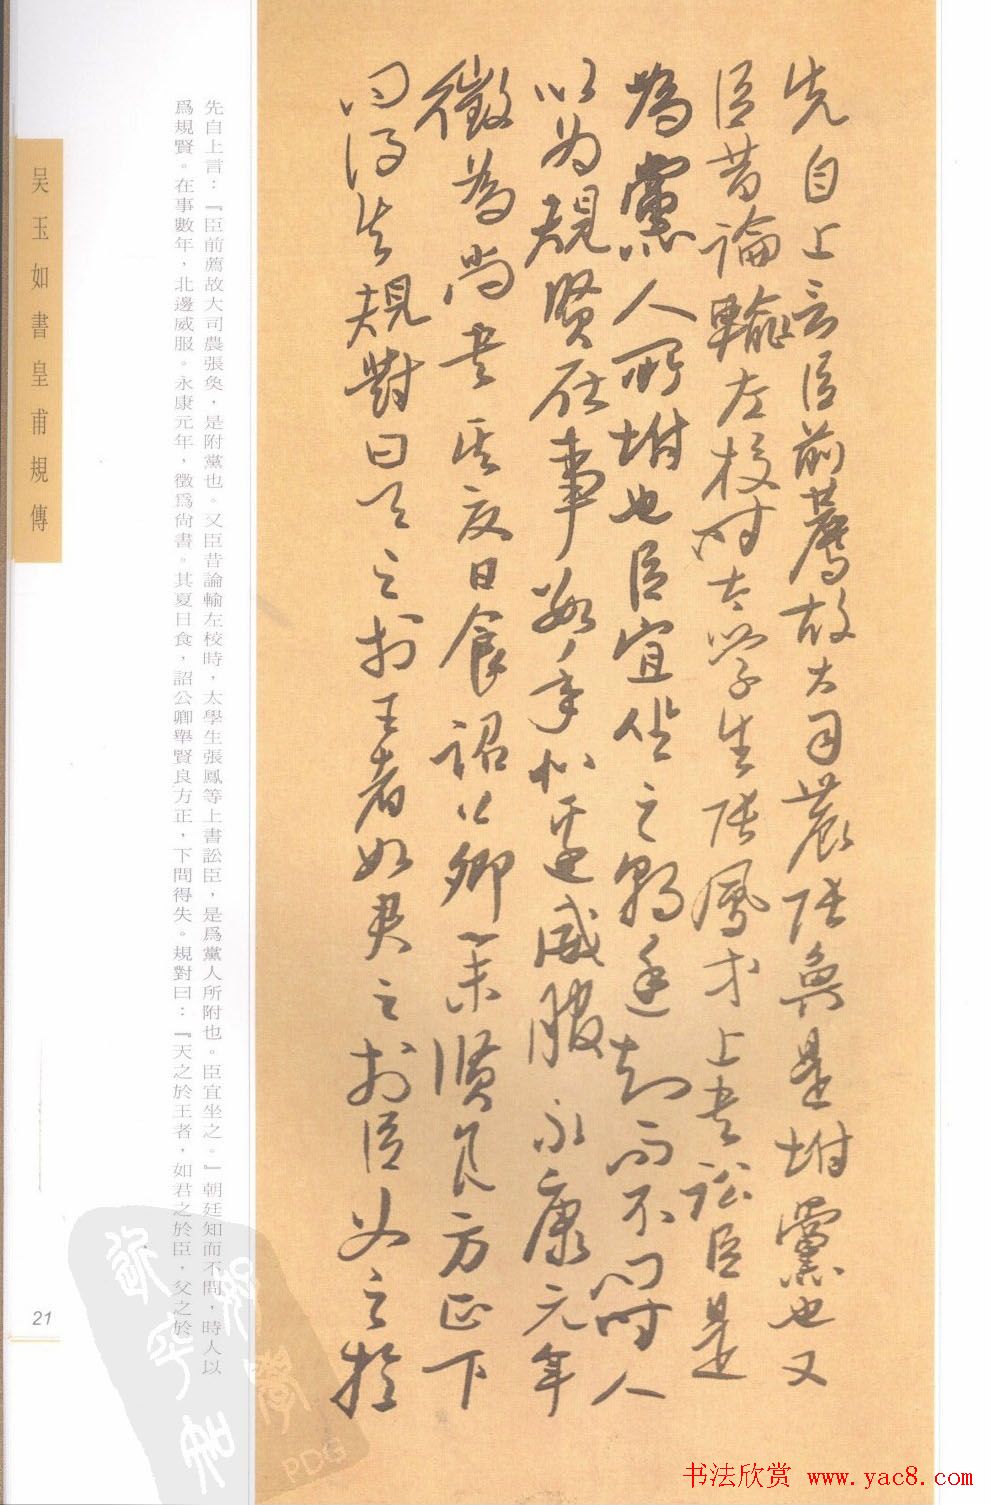 先自上言臣前薦故大司農張奐是坿黨也又
臣昔論輸左校時太學生張鳳等上書訟臣是
為黨人所坿也臣宜坐之朝廷知而不問時人
以為規賢在事數年北邊威服永康元年
徵為尚書其夏日食詔公卿舉賢良方正下
問得失規對曰天之於王者如君之於臣父之於
先自上言：『臣前薦故大司農張奐，是附黨也。又臣昔論輸左校時，太學生張鳳等上書訟臣，是爲黨人所附也。臣宜坐之。』朝廷知而不問，時人以
爲規賢。在事數年，北邊威服。永康元年，徵爲尙書。其夏日食，詔公卿舉賢良方正，下問得失。規對曰：『天之於王者，如君之於臣，父之於
吴玉如書皇甫規傳
21
PDG
书法欣赏 www.yac8.com